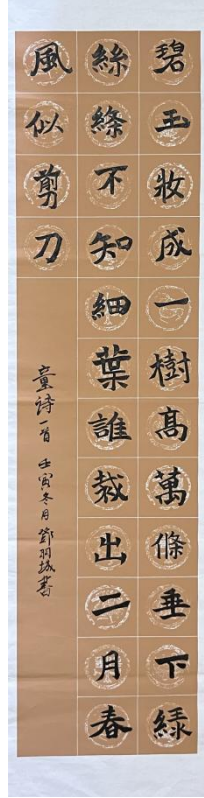 碧玉妝成一樹高萬條垂下綠
絲縧不知細葉誰裁出二月春
風似剪刀
童詩一首 壬寅冬月 鄧羽城書